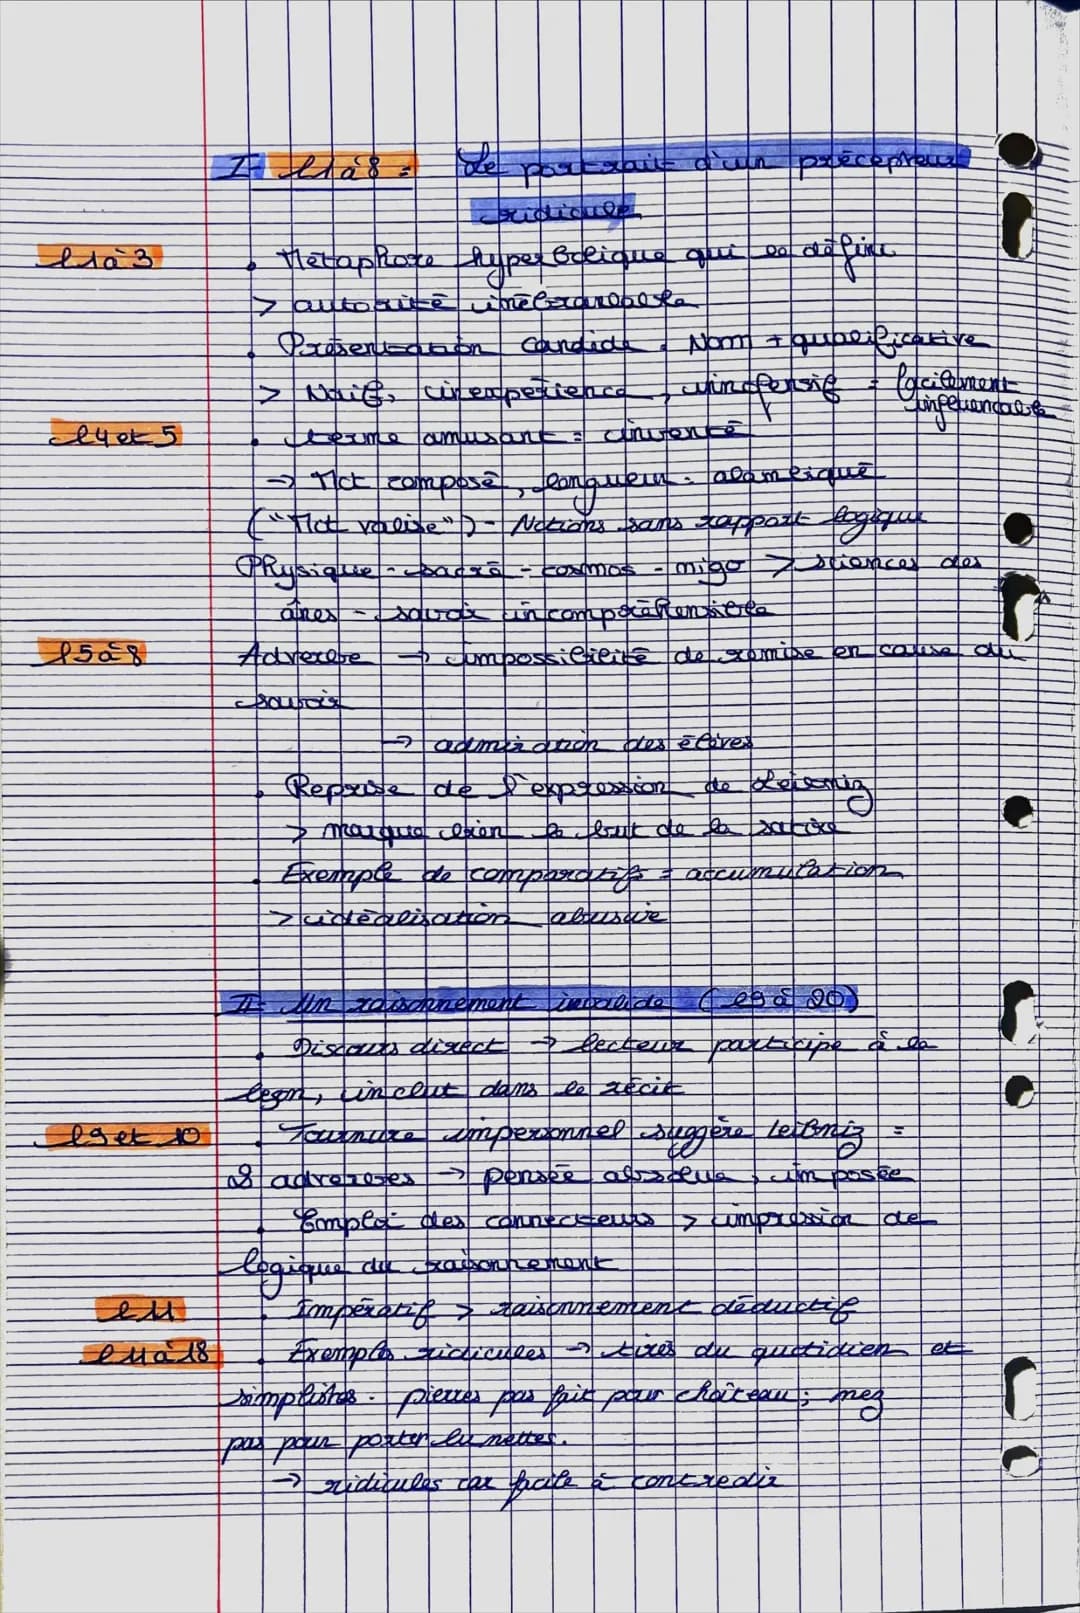 I- l1 à 8 = Le portrait d'un précepteur
ridicule
l1 à 3 . Métaphore hyperbolique qui le défini
> autorité inébranlable
. Présentation Candide. Nom + qualificative
> Naif, inexpérience, inofensif = facilement
influencable
l4 et 5 . terme amusant = inventé
→ Mot composé, longueur. alambiqué
("Mot valise") - Notions sans rapport logique
Physique - sacré - cosmos - nigo > sciences des
ânes - savoir incompréhensible
l5 à 8 Adverbe → impossibilité de remise en cause du
savoir
→ admiration des élèves
. Reprise de l'expression de Leibniz
> marque bien le but de la satire
. Exemple de comparatifs = accumulation
> idéalisation abusive
II- Un raisonnement invalide (l9 à 20)
. Discours direct → lecteur participe à la
leçon, inclut dans le récit
l9 et 10 . Tournure impersonnel suggère leibniz =
2 adverbes → pensée absolue, imposée
. Emploi des connecteurs > impression de
logique du raisonnement
l11 . Impératif > raisonnement déductif
l11 à 18 . Exemples ridicules → tirés du quotidien et
simplistes. pierres pas fait pour château; nez
pas pour porter lunettes.
→ ridicules car facile à contredir